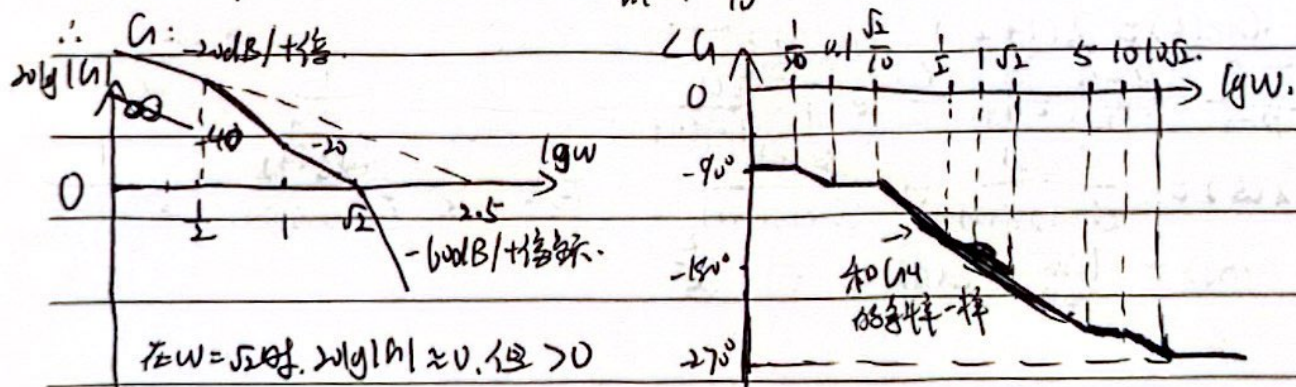 ∴ G: -20dB/十倍.
20lg|G|
∞
-40
-20
lgω
0
1/2 1 √2 2.5
-60dB/十倍频.
在ω=√2时, 20lg|G|≈0, 但>0
∠G
1/20 0.1 √2/10 1/2 1 √2 5 10 10√2.
0
lgω.
-90°
-180°
和G4
的斜率一样
-270°